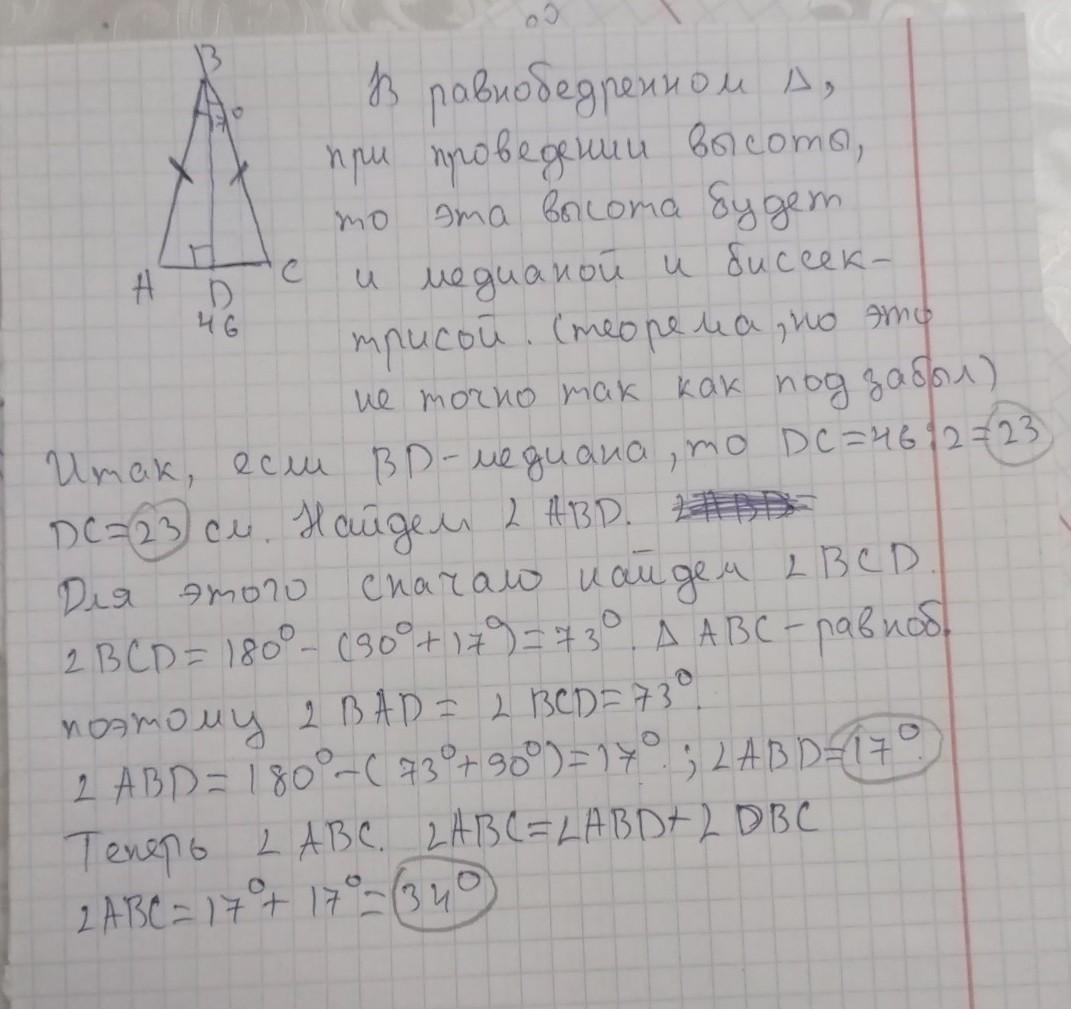 B
17°
A
D
C
46
В равнобедренном Δ,
при проведении высоты,
то эта высота будет
и медианой и биссек-
трисой. (теорема, но это
не точно так как подзабыл)
Итак, если BD-медиана, то DC=46:2=23
DC=23 см. Найдем ∠ABD.
Для этого сначало найдем ∠BCD.
∠BCD=180°-(90°+17°)=73°. Δ ABC-равноб,
поэтому ∠BAD = ∠BCD=73°.
∠ABD=180°-(73°+90°)=17°.; ∠ABD=17°.
Теперь ∠ABC. ∠ABC=∠ABD+∠DBC
∠ABC=17°+17°=34°